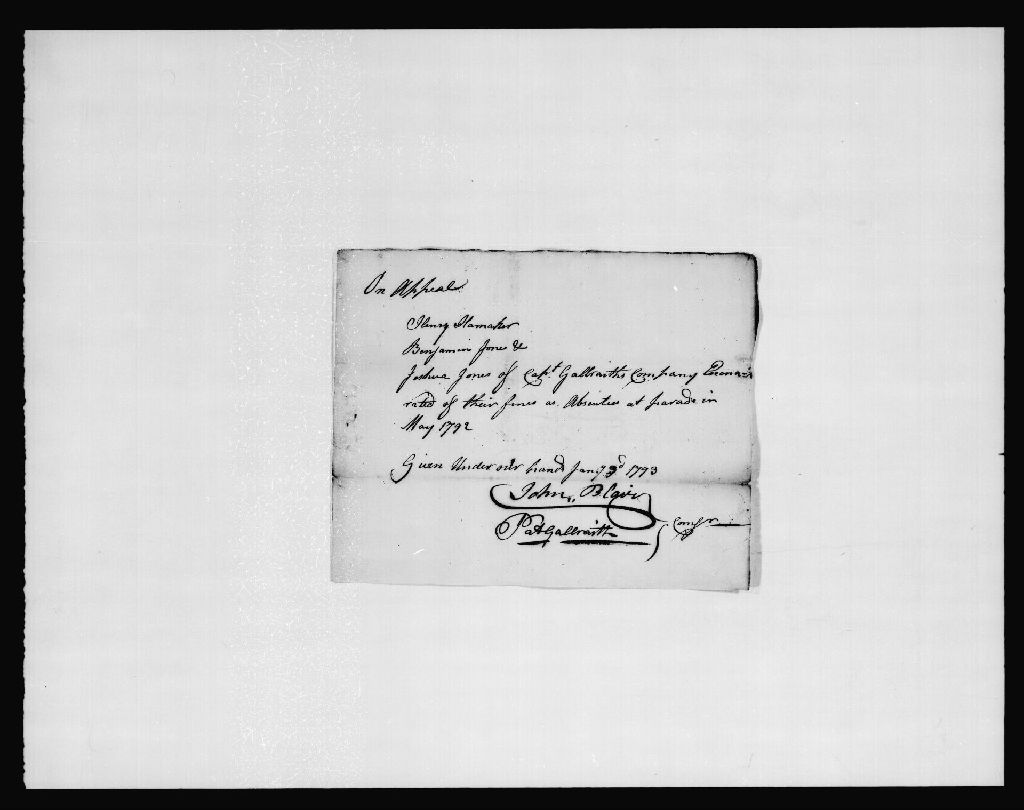 On Appeal
Henry Hamaker
Benjamin Jones &
Joshua Jones of Capt Galbraiths Company Exone
rated of their fines as Absentees at parade in
May 1792
Given Under our hands Jany 3d 1793
John Blair
Pat Galbraith